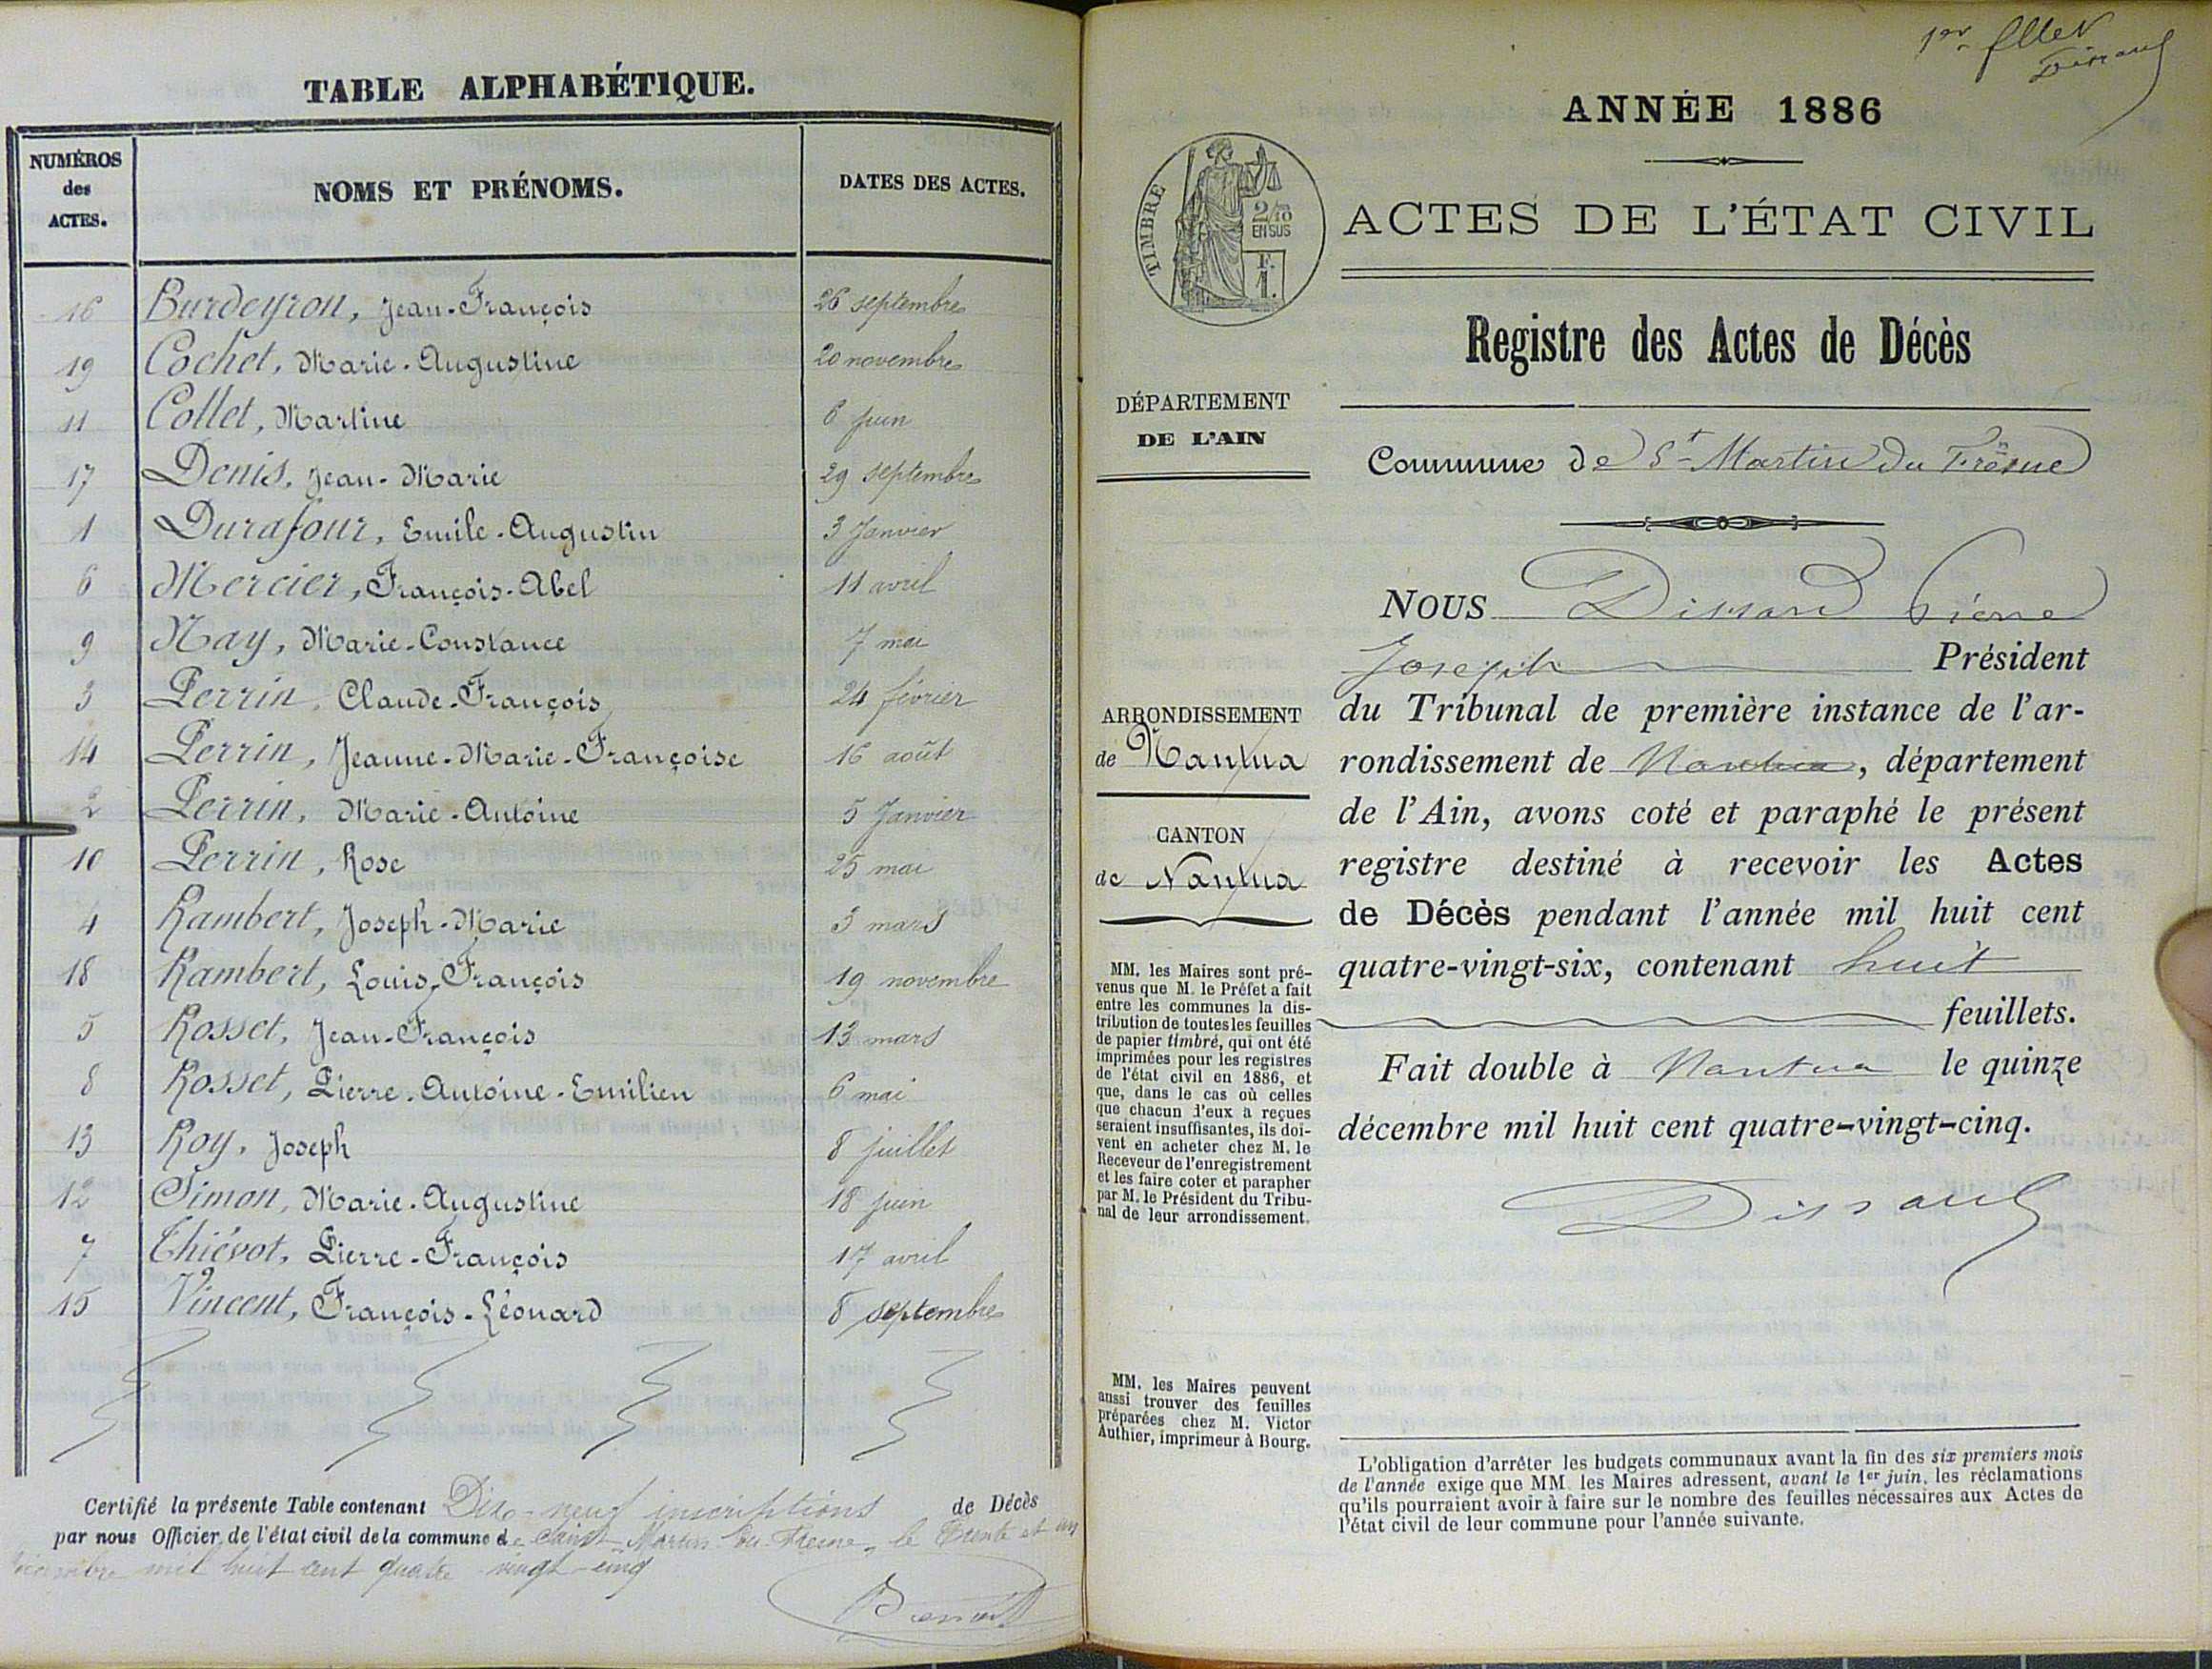 TABLE ALPHABÉTIQUE.
NUMÉROS des ACTES. NOMS ET PRÉNOMS. DATES DES ACTES.
16 Burdeyron, Jean-François 26 septembre
19 Cochet, Marie-Augustine 20 novembre
11 Collet, Martine 6 juin
17 Denis, Jean-Marie 29 septembre
1 Durafour, Emile-Augustin 3 Janvier
6 Mercier, François-Abel 11 avril
9 Nay, Marie-Constance 7 mai
3 Perrin, Claude-François 24 février
14 Perrin, Jeanne-Marie-Françoise 16 août
2 Perrin, Marie-Antoine 5 Janvier
10 Perrin, Rose 25 mai
4 Rambert, Joseph-Marie 3 mars
18 Rambert, Louis-François 19 novembre
5 Rosset, Jean-François 13 mars
8 Rosset, Pierre-Antoine-Emilien 6 mai
13 Roy, Joseph 8 juillet
12 Simon, Marie-Augustine 18 juin
7 Thiévot, Pierre-François 17 avril
15 Vincent, François-Léonard 8 septembre
Certifié la présente Table contenant Dix-neuf inscriptions de Décès
par nous Officier de l'état civil de la commune de Saint-Martin-du-Fresne, le Trente et un
décembre mil huit cent quatre-vingt-cinq
1er fllet
Dissard
ANNÉE 1886
TIMBRE
2/10
EN SUS
F.
1.
ACTES DE L'ÉTAT CIVIL
Registre des Actes de Décès
DÉPARTEMENT
DE L'AIN
Commune de St Martin du Frêsne
NOUS Dissard Pierre
Joseph Président
du Tribunal de première instance de l'ar-
rondissement de Nantua, département
de l'Ain, avons coté et paraphé le présent
registre destiné à recevoir les Actes
de Décès pendant l'année mil huit cent
quatre-vingt-six, contenant huit
feuillets.
Fait double à Nantua le quinze
décembre mil huit cent quatre-vingt-cinq.
Dissard
ARRONDISSEMENT
de Nantua
CANTON
de Nantua
MM. les Maires sont pré-
venus que M. le Préfet a fait
entre les communes la dis-
tribution de toutes les feuilles
de papier timbré, qui ont été
imprimées pour les registres
de l'état civil en 1886, et
que, dans le cas où celles
que chacun d'eux a reçues
seraient insuffisantes, ils doi-
vent en acheter chez M. le
Receveur de l'enregistrement
et les faire coter et parapher
par M. le Président du Tribu-
nal de leur arrondissement.
MM. les Maires peuvent
aussi trouver des feuilles
préparées chez M. Victor
Authier, imprimeur à Bourg.
L'obligation d'arrêter les budgets communaux avant la fin des six premiers mois
de l'année exige que MM. les Maires adressent, avant le 1er juin, les réclamations
qu'ils pourraient avoir à faire sur le nombre des feuilles nécessaires aux Actes de
l'état civil de leur commune pour l'année suivante.